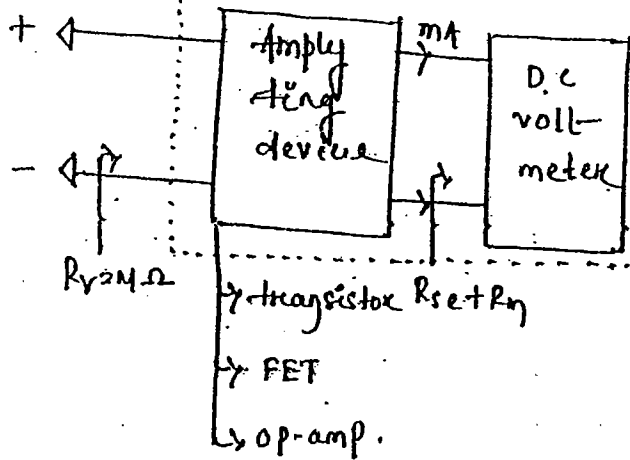 +
-
Amply
ting
device
mA
D.C
volt-
meter
Rv=MΩ
Rse+Rm
transistor
FET
op-amp.